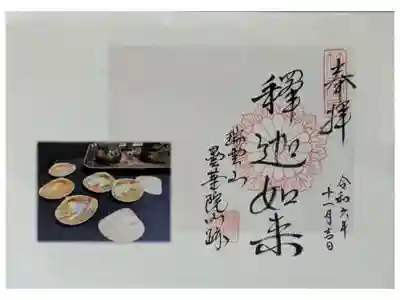 奉拝
令和六年
十一月吉日
釋迦如来
瑞雲山
曇華院門跡